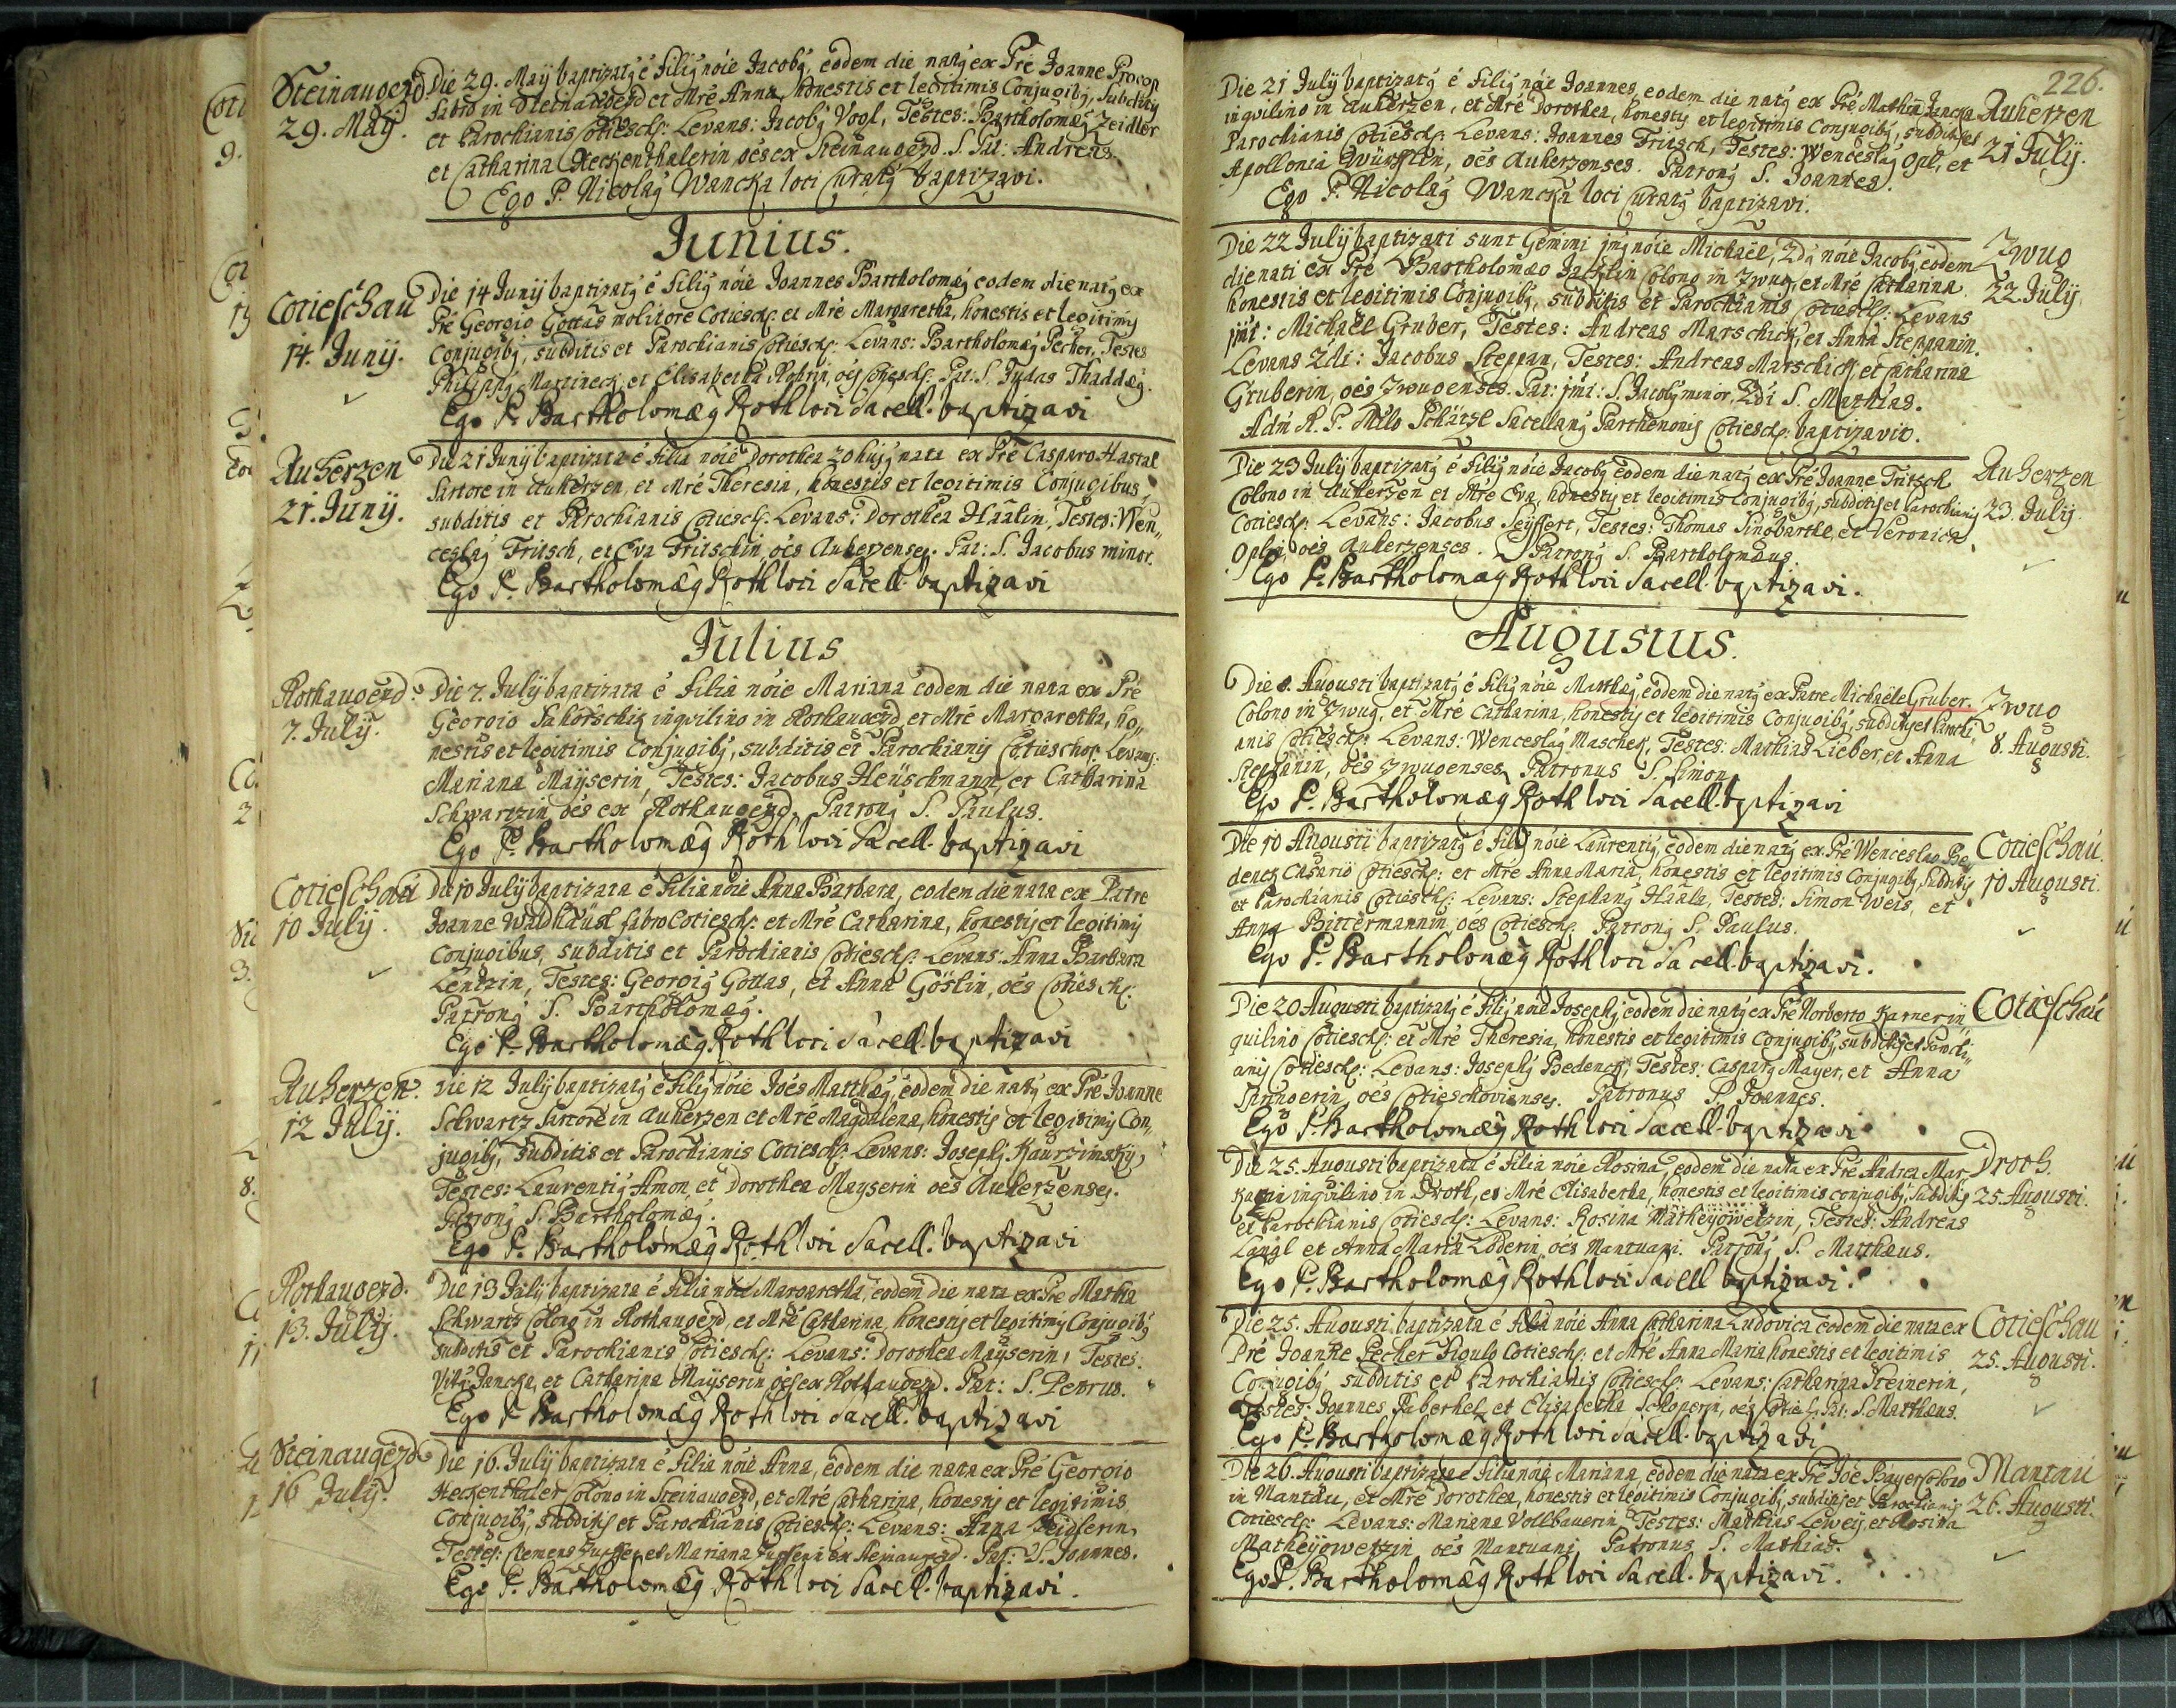 Steinaugezd
29. Maÿ.
Die 29. Maij baptizatq é Filiq nöie Jacobq, eodem die natq ex Pré Joanne Procop
Fabro in Steinaugezd et Mré Anna, honestis et legitimis Conjugibq, Subditis
et Parochianis Cotiesch: Levans: Jacobq Vogl, Testes: Bartholomæq Zeidler
et Catharina Heckenthalerin oés ex Steinaugezd. S. Pat: Andreas.
Ego P. Nicolaq Wancka loci Curatq baptizavi.
Junius.
Cotieschau
14. Junij.
Die 14 Junij baptizatq é Filiq nöie Joannes Bartholomæq eodem die natq ex
Pré Georgio Gottas molitore Cotiesch: et Mré Margaretha, honestis et legitimis
Conjugibq, subditis et Parochianis Cotiesch: Levans: Bartholomæq Pecher, Testes
Philippq Martineck, et Elisabetha Robrin, oés Cotiesch: Pat: S. Judas Thaddæq.
Ego P. Bartholomæq Roth loci Sacell. baptizavi
Auherzen
21. Junij.
Die 21 Junij baptizata é Filia nöie Dorothea 20 hujq nata ex Pré Casparo Hastal
Sartore in Auherzen, et Mré Theresia, honestis et legitimis Conjugibus,
subditis et Parochianis Cotiesch: Levans: Dorothea Häälin, Testes: Wen„
ceslaq Fritsch, et Eva Fritschin, oés Auherzenses. Pat: S. Jacobus minor.
Ego P. Bartholomæq Roth loci Sacell. baptizavi
Julius
Rothaugezd.
7. July.
Die 7. Julij baptizata é Filia nöie Mariana eodem die nata ex Pré
Georgio Sahorschik inqvilino in Rothaugezd, et Mré Margaretha, ho„
nestis et legitimis Conjugibq, subditis et Parochianis Cotieschov: Levans:
Mariana Maÿserin, Testes: Jacobus Heüschmann, et Catharina
Schwartzin, oés ex Rothaugezd. Patronq S. Paulus.
Ego P. Bartholomæq Roth loci Sacell. baptizavi
Cotieschau
10 July.
Die 10 Julij baptizata é Filia nöie Anna Barbara, eodem die nata ex Patre
Joanne Waldhäusl fabro Cotiesch: et Mré Catharina, honestis et legitimis
Conjugibus, subditis et Parochianis Cotiesch: Levans: Anna Barbara
Lentzin, Testes: Georgiq Gottas, et Anna Göslin, oés Cotiesch:
Patronq S. Bartholomæq.
Ego P. Bartholomæq Roth loci Sacell. baptizavi
Auherzen.
12 July.
Die 12 Julij baptizatq é Filiq nöie Joés Matthæq, eodem die natq ex Pré Joanne
Schwartz Sartore in Auherzen et Mré Magdalena, honestis et legitimis Con„
jugibq, subditis et Parochianis Cotiesch: Levans: Josephq Kaurzimsky,
Testes: Laurentiq Amon, et Dorothea Mayserin oés Auherzenses.
Patronq S. Bartholomæq.
Ego P. Bartholomæq Roth loci Sacell. baptizavi
Rothaugezd.
13. July.
Die 13 Julij baptizata é Filia nöie Margaretha, eodem die nata ex Pré Mathia
Schwartz Colono in Rothaugezd, et Mré Catharina, honestis et legitimis Conjugibq
subditis et Parochianis Cotiesch: Levans: Dorothea Mayserin, Testes:
Vitq Jancka, et Catharina Mayserin oés ex Rothaugezd. Pat: S. Petrus.
Ego P. Bartholomæq Roth loci Sacell. baptizavi
Steinaugezd
16 July.
Die 16. Julij baptizata é Filia nöie Anna, eodem die nata ex Pré Georgio
Heckenthaler Colono in Steinaugezd, et Mré Catharina, honestis et legitimis
Conjugibq, subditis et Parochianis Cotiesch: Levans: Anna Zeidlerin,
Testes: Clemens et Mariana ex Steinaugezd. Pat: S. Joannes.
Ego P. Bartholomæq Roth loci Sacell. baptizavi.
226.
Auherzen
21 July.
Die 21 Julij baptizatq é Filiq nöie Joannes, eodem die natq ex Pré Mathia Jancka
inqvilino in Auherzen, et Mré Dorothea, honestis et legitimis Conjugibq, subditis et
Parochianis Cotiesch: Levans: Joannes Fritsch, Testes: Wenceslaq Opl, et
Apollonia Würfflin, oés Auherzenses. Patronq S. Joannes.
Ego P. Nicolaq Wancka loci Curatq baptizavi.
Zwug
22 July.
Die 22 Julij baptizati sunt Gemini jmq nöie Michaël, 2dq nöie Jacobq, eodem
die nati ex Pré Bartholomæo Jacklin Colono in Zwug, et Mré Catharina
honestis et legitimis Conjugibq, subditis et Parochianis Cotiesch: Levans
jmi: Michaël Gruber, Testes: Andreas Marschick, et Anna Steppanin.
Levans 2di: Jacobus Steppan, Testes: Andreas Marschick, et Catharina
Gruberin, oés Zwugenses. Pat: jmi: S. Jacobq minor, 2di S. Mathias.
Adm R. P. Milo Schätzl Sacellanq Parthenonis Cotiesch: baptizavit.
Auherzen
23. July.
Die 23 Julij baptizatq é Filiq nöie Jacobq eodem die natq ex Pré Joanne Fritsch
Colono in Auherzen et Mré Eva, honestis et legitimis Conjugibq, subditis et Parochianis
Cotiesch: Levans: Jacobus Seÿffert, Testes: Thomas Singbartle, et Veronica
Oplin, oés Auherzenses. Patronq S. Bartholomæus.
Ego P. Bartholomæq Roth loci Sacell. baptizavi.
Augustus.
Zwug
8. Augusti.
Die 8. Augusti baptizatq é Filiq nöie Matthæq, eodem die natq ex Patre Michaële Gruber.
Colono in Zwug, et Mré Catharina, honestis et legitimis Conjugibq, subditis et Parochi
anis Cotiesch: Levans: Wenceslaq Maschek, Testes: Mathias Lieber, et Anna
Stephanin, oés Zwugenses, Patronus S. Simon
Ego P. Bartholomæq Roth loci Sacell. baptizavi
Cotieschau.
10 Augusti.
Die 10 Augusti baptizatq é Filiq nöie Laurentiq eodem die natq ex Pré Wenceslao Be„
denck Casario Cotiesch: et Mré Anna Maria, honestis et legitimis Conjugibq, subditis
et Parochianis Cotiesch: Levans: Stephanq Häala, Testes: Simon Weis, et
Anna Bittermannin, oés Cotiesch: Patronq S. Paulus.
Ego P. Bartholomæq Roth loci Sacell. baptizavi.
Cotieschau
Die 20 Augusti baptizatq é Filiq nöie Josephq, eodem die natq ex Pré Norberto Karner in
quilino Cotiesch: et Mré Theresia, honestis et legitimis Conjugibq, subditis et Parochi„
anis Cotiesch: Levans: Josephq Bedenck, Testes: Casparq Mayer, et Anna
Springerin, oés Cotieschovienses. Patronus S. Joannes.
Ego P. Bartholomæq Roth loci Sacell. baptizavi
Droth.
25. Augusti.
Die 25. Augusti baptizata é Filia nöie Rosina, eodem die nata ex Pré Andrea Mar„
inqvilino in Droth, et Mré Elisabetha, honestis et legitimis conjugibq, subditis
et Parochianis Cotiesch: Levans: Rosina Matheÿowetzin, Testes: Andreas
Langl et Anna Maria Loderin, oés Mantuani. Patronq S. Matthæus.
Ego P. Bartholomæq Roth loci Sacell baptizavi.
Cotieschau
25. Augusti.
Die 25. Augusti baptizata é Filia nöie Anna Catharina Ludovica eodem die nata ex
Pré Joanne Pecher Figulo Cotiesch: et Mré Anna Maria honestis et legitimis
Conjugibq subditis et Parochianis Cotiesch: Levans: Catharina Steinerin,
Testes: Joannes Haberhel, et Elisabetha oés Cotiesch: Pat: S. Matthæus.
Ego P. Bartholomæq Roth loci Sacell. baptizavi
Mantau
26. Augusti.
Die 26. Augusti baptizata é Filia nöie Mariana, eodem die nata ex Pré Joe Bayer Colono
in Mantau, et Mré Dorothea, honestis et legitimis Conjugibq, subditis et Parochianis
Cotiesch: Levans: Mariana Vollbauerin, Testes: Mathias Leweÿ, et Rosina
Matheÿowetzin oés Mantuani. Patronus S. Mathias.
Ego P. Bartholomæq Roth loci Sacell. baptizavi.